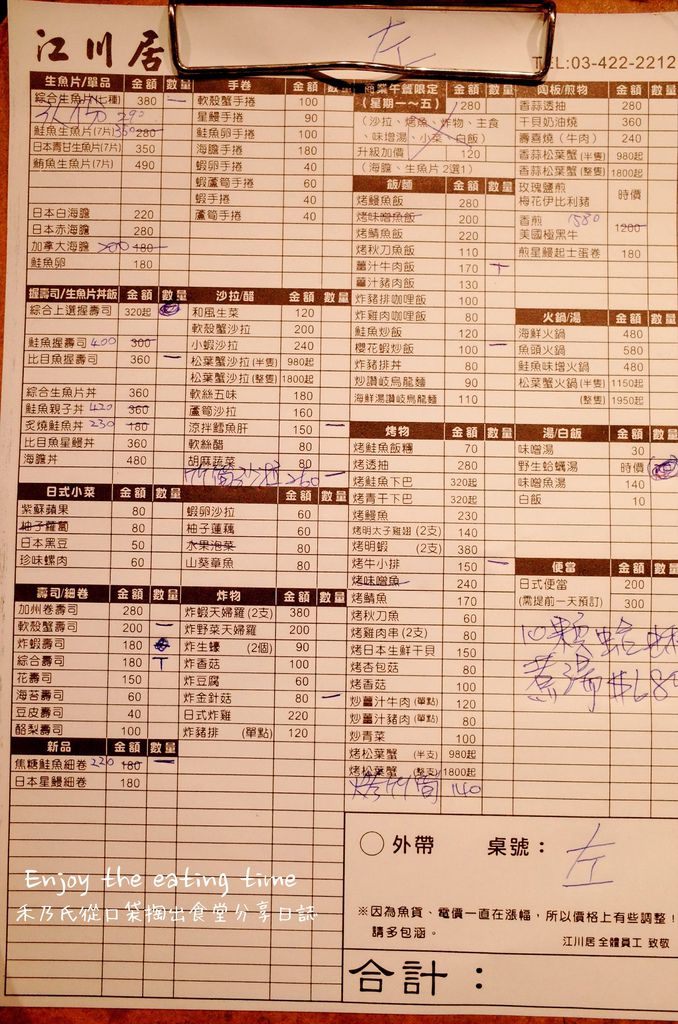 江川居
左
TEL:03-422-2212
生魚片/單品 金額 數量
綜合生魚片(七種) 380 一
290
鮭魚生魚片(7片) 350 280
日本青甘生魚片(7片) 350
鮪魚生魚片(7片) 490
日本白海膽 220
日本赤海膽 280
加拿大海膽 200 180
鮭魚卵 180
握壽司/生魚片丼飯 金額 數量
綜合上選握壽司 320起
鮭魚握壽司 400 300
比目魚握壽司 360 一
綜合生魚片丼 360
鮭魚親子丼 420 360
炙燒鮭魚丼 230 180
比目魚星鰻丼 360
海膽丼 480
日式小菜 金額 數量
紫蘇蘋果 80
柚子蘿蔔 80
日本黑豆 50
珍味螺肉 60
壽司/細卷 金額 數量
加州卷壽司 280
軟殼蟹壽司 200 一
炸蝦壽司 180
綜合壽司 180 T
花壽司 150
海苔壽司 60
豆皮壽司 40
酪梨壽司 100
新品 金額 數量
焦糖鮭魚細卷 220 180 一
日本星鰻細卷 180
手卷 金額 數量
軟殼蟹手捲 100
星鰻手捲 90
鮭魚卵手捲 100
海膽手捲 180
蝦卵手捲 40
蝦蘆筍手捲 60
蝦手捲 40
蘆筍手捲 40
沙拉/醋 金額 數量
和風生菜 120
軟殼蟹沙拉 200
小蝦沙拉 240
松葉蟹沙拉(半隻) 980起
松葉蟹沙拉(整隻) 1800起
軟絲五味 180
蘆筍沙拉 160
涼拌鱈魚肝 150 一
軟絲醋 80
胡麻蔬菜 80
竹筍沙拉 260 一
蝦卵沙拉 60
柚子蓮藕 60
水果泡菜 80
山葵章魚 80
炸物 金額 數量
炸蝦天婦羅(2支) 380
炸野菜天婦羅 200
炸生蠔 (2個) 90
炸香菇 100
炸豆腐 60
炸金針菇 80 一
日式炸雞 220
炸豬排 (單點) 120
商業午餐限定
(星期一~五) 280
(沙拉、烤魚、炸物、主食
、味噌湯、小菜、白飯)
升級加價 120
(海膽、生魚片2選1)
飯/麵 金額 數量
烤鰻魚飯 280
烤味噌魚飯 200
烤鯖魚飯 220
烤秋刀魚飯 110
薑汁牛肉飯 170 T
薑汁豬肉飯 130
炸豬排咖哩飯 100
炸雞肉咖哩飯 80
鮭魚炒飯 120
櫻花蝦炒飯 100 一
炸豬排丼 80
炒讚岐烏龍麵 90
海鮮湯讚岐烏龍麵 110
烤物 金額 數量
烤鮭魚飯糰 70
烤透抽 280
烤鮭魚下巴 320起
烤青干下巴 320起
烤鰻魚 230
烤明太子雞翅 (2支) 140
烤明蝦 (2支) 380
烤牛小排 150 一
烤味噌魚 240
烤鯖魚 170
烤秋刀魚 60
烤雞肉串(2支) 80
烤日本生鮮干貝 150
烤杏包菇 80
烤香菇 100
炒薑汁牛肉(單點) 150
炒薑汁豬肉(單點) 120
炒青菜 100
烤松葉蟹 (半支) 980起
烤松葉蟹 (整支) 1800起
烤竹筍 140
陶板/煎物 金額 數量
香蒜透抽 280
干貝奶油燒 360
壽喜燒(牛肉) 240
香蒜松葉蟹(半隻) 980起
香蒜松葉蟹(整隻) 1800起
玫瑰鹽煎
梅花伊比利豬 時價
香煎 1580
美國極黑牛 1200
煎星鰻起士蛋卷 180
火鍋/湯 金額 數量
海鮮火鍋 480
魚頭火鍋 580
鮭魚味噌火鍋 480
松葉蟹火鍋(半隻) 1150起
(整隻) 1950起
湯/白飯 金額 數量
味噌湯 30
野生蛤蠣湯 時價
味噌魚湯 140
白飯 10
便當 金額 數量
日式便當 200
(需提前一天預訂) 300
10顆蛤蜊
煮湯$180
外帶 桌號: 左
※因為魚貨、電價一直在漲幅,所以價格上有些調整!
請多包涵。
江川居全體員工 致敬
合計:
Enjoy the eating time
禾乃氏從口袋掏出食堂分享日誌